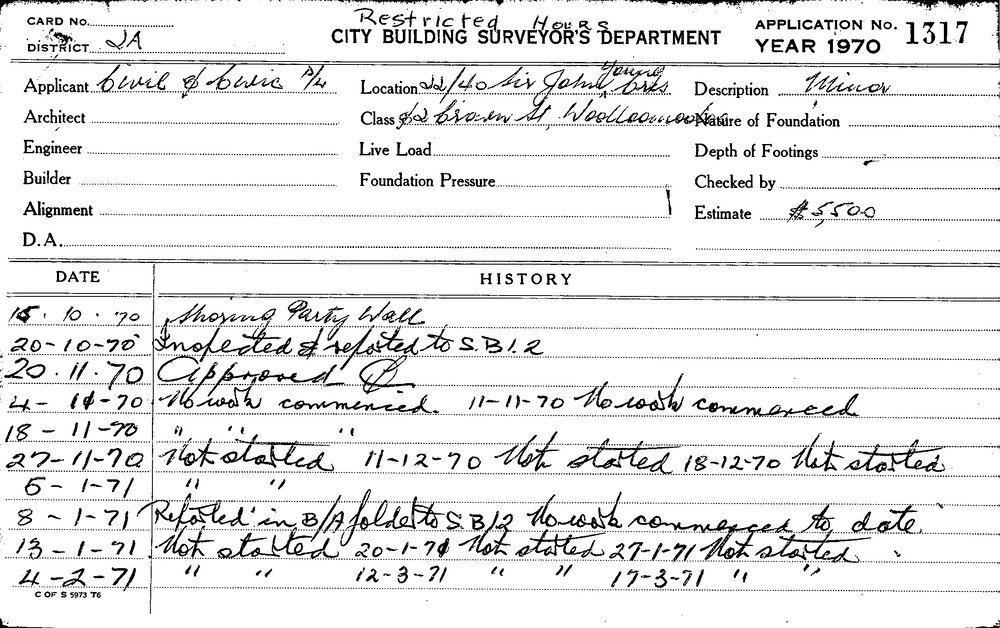 Restricted Hours
CARD No.
CITY BUILDING SURVEYOR'S DEPARTMENT
APPLICATION No. 1317
DISTRICT 2A
YEAR 1970
Applicant Civil & Civic P/L
Location 22/40 Sir John Young Cres
Description Minor
Architect
Class & 2 Crown St, Woolloomooloo
Nature of Foundation
Engineer
Live Load
Depth of Footings
Builder
Foundation Pressure
Checked by
Alignment
Estimate $5,500
D.A.
DATE HISTORY
15.10.70 Shoring Party Wall
20-10-70 Inspected & reported to S.B.1.2
20.11.70 Approved
4-11-70 No work commenced. 11-11-70 No work commenced
18-11-70 " " "
27-11-70 Not started 11-12-70 Not started 18-12-70 Not started
5-1-71 " "
8-1-71 Reported in B/A folder to S.B/2 No work commenced to date.
13-1-71 Not started 20-1-71 Not started 27-1-71 Not started
4-2-71 " " 12-3-71 " " 17-3-71 " "
C OF S 5973 T6